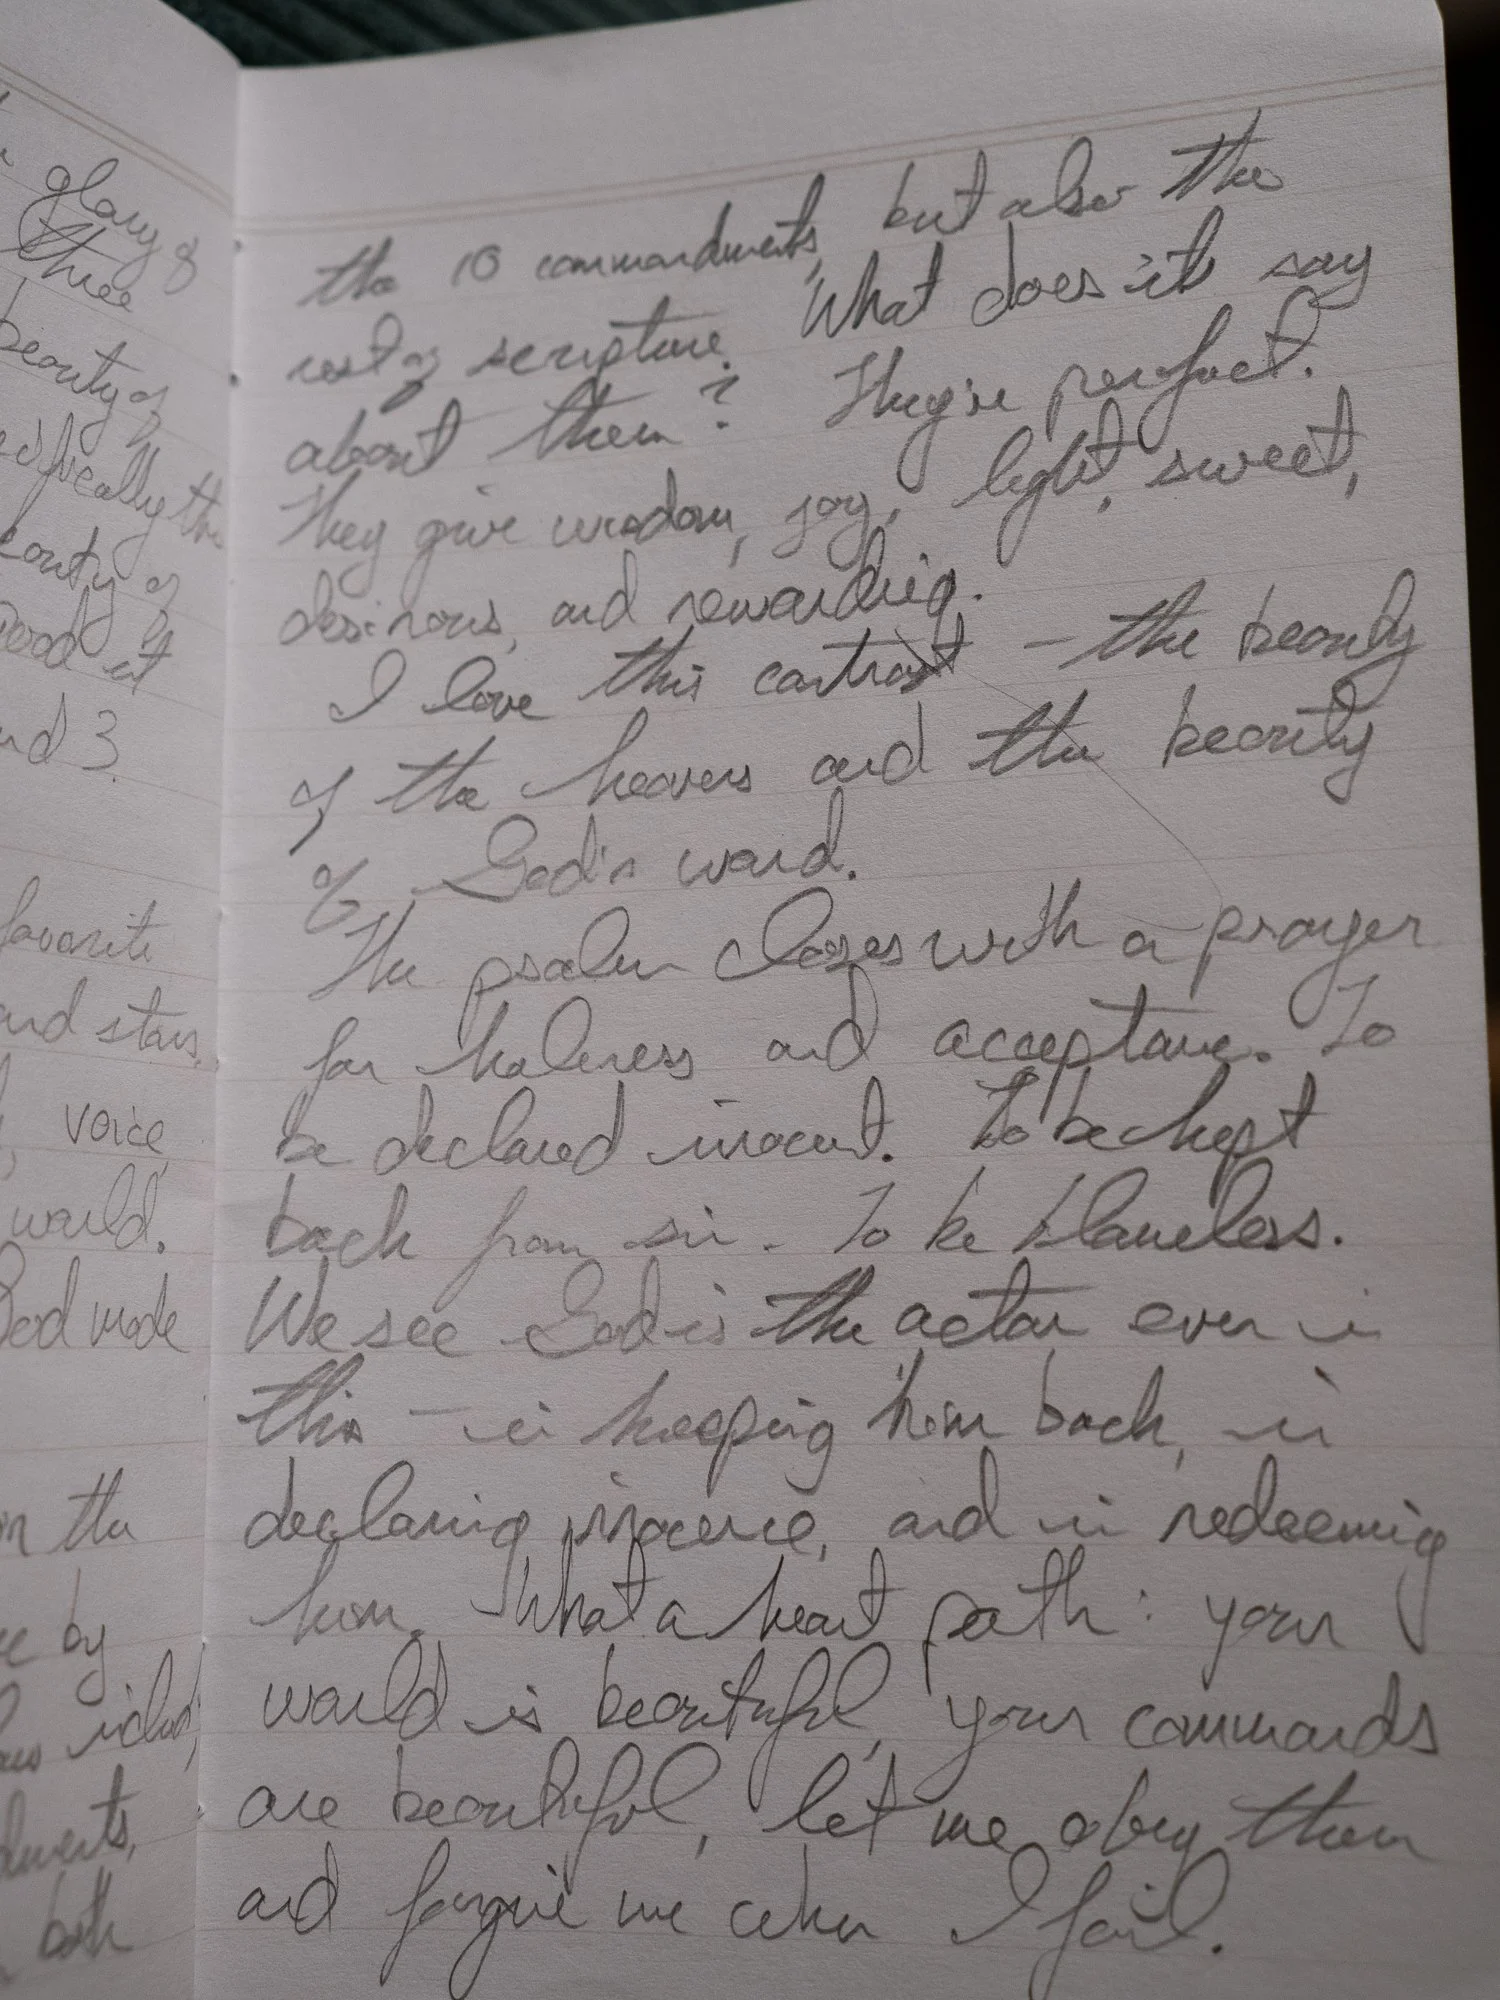 glory of
three
beauty of
the
beauty of
3.
favorite
and stars.
voice,
world.
God made
in the
by
both
the 10 commandments, but also the
rest of scripture. What does it say
about them? They're perfect.
They give wisdom, joy, light, sweet,
desirous, and rewarding.
I love this contrast – the beauty
of the heavens and the beauty
of God's word.
The psalm closes with a prayer
for holiness and acceptance. To
be declared inocent. To be kept
back from sin. To be blameless.
We see God is the actor even in
this – in keeping him back, in
declaring innocence, and in redeeming
him. What a heart path: your
world is beautiful, your commands
are beautiful, let me obey them
and forgive me when I fail.